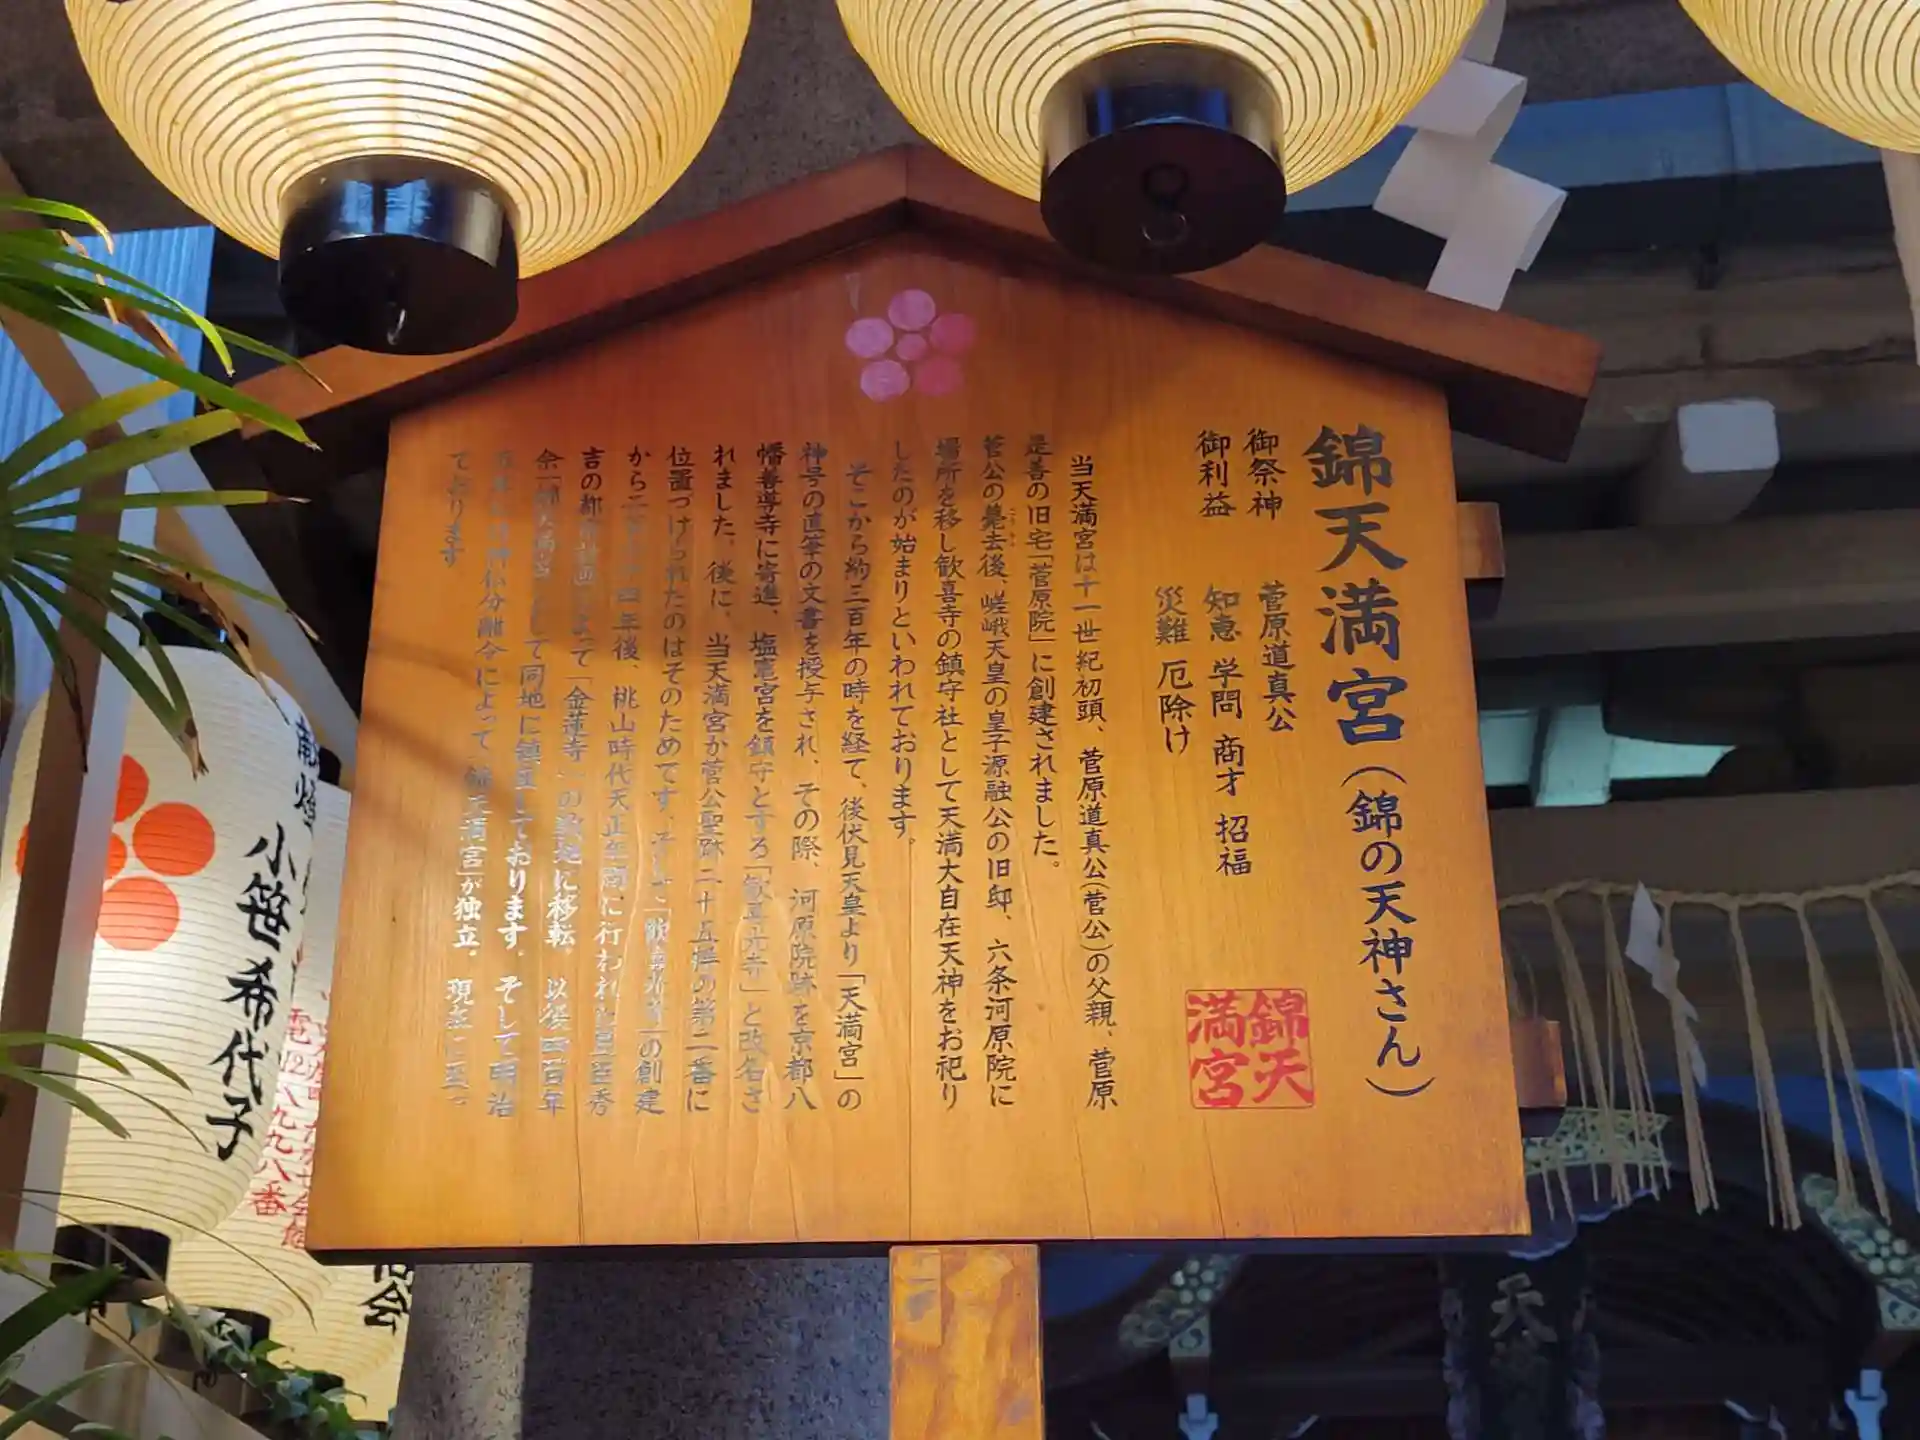 錦天満宮（錦の天神さん）
御祭神　菅原道真公
御利益　知恵 学問 商才 招福
災難 厄除け
錦天
満宮
当天満宮は十一世紀初頭、菅原道真公(菅公)の父親、菅原
是善の旧宅「菅原院」に創建されました。
菅公の薨去後、嵯峨天皇の皇子源融公の旧邸、六条河原院に
場所を移し歓喜寺の鎮守社として天満大自在天神をお祀り
したのが始まりといわれております。
そこから約三百年の時を経て、後伏見天皇より「天満宮」の
神号の直筆の文書を授与され、その際、河原院跡を京都八
幡善導寺に寄進、塩竈宮を鎮守とする「歓喜光寺」と改名さ
れました。後に、当天満宮が菅公聖跡二十五拝の第二番に
位置づけられたのはそのためです。そして「歓喜光寺」の創建
から二百 年後、桃山時代天正年間に行われた豊臣秀
吉の都市計画によって「金蓮寺」の敷地に移転。以後四百年
余「錦天満宮」として同地に鎮座しております。そして明治
神仏分離令によって「錦天満宮」が独立。現在に至っ
ております
献燈
小笹希代子
八九九八番
天